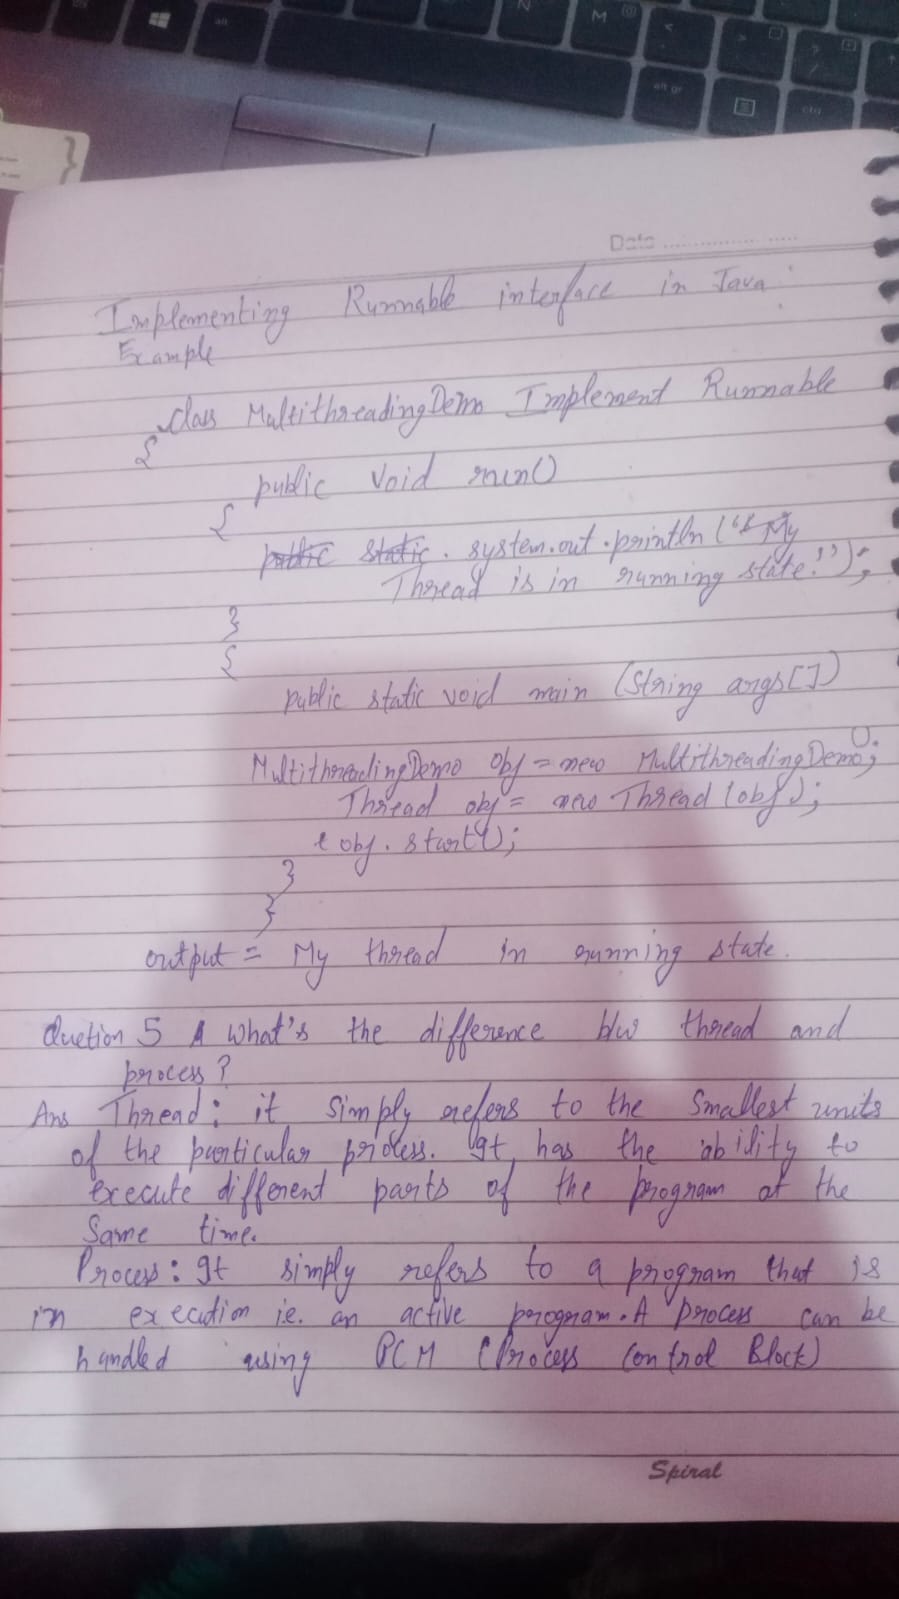 Date
Implementing Runnable interface in Java:
Example
class MultithreadingDemo Implement Runnable
{
public void run()
{
public static. system.out.println (“My
Thread is in running state!”);
}
{
public static void main (String args[])
MultithreadingDemo obj = new MultithreadingDemo();
Thread obj = new Thread (obj);
t obj. start();
}
}
output = My thread in running state.
Quetion 5 what's the difference b/w thread and
process?
Ans Thread: it simply refers to the smallest units
of the particular process. It has the ability to
execute different parts of the program at the
Same time.
Process: It simply refers to a program that is
in execution i.e. an active program. A process can be
handled using PCM (Process Control Block)
Spiral